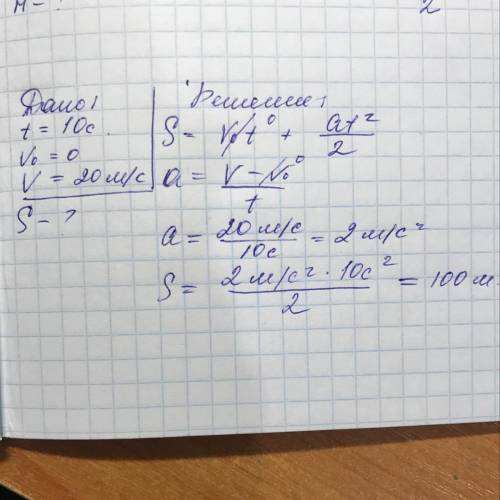 Дано:
t = 10с.
V₀ = 0
V = 20 м/с
S - ?
Решение:
S = V₀t⁰ + at²/2
a = V - V₀⁰/t
a = 20 м/с/10с = 2 м/с²
S = 2 м/с² · 10с²/2 = 100 м.
2